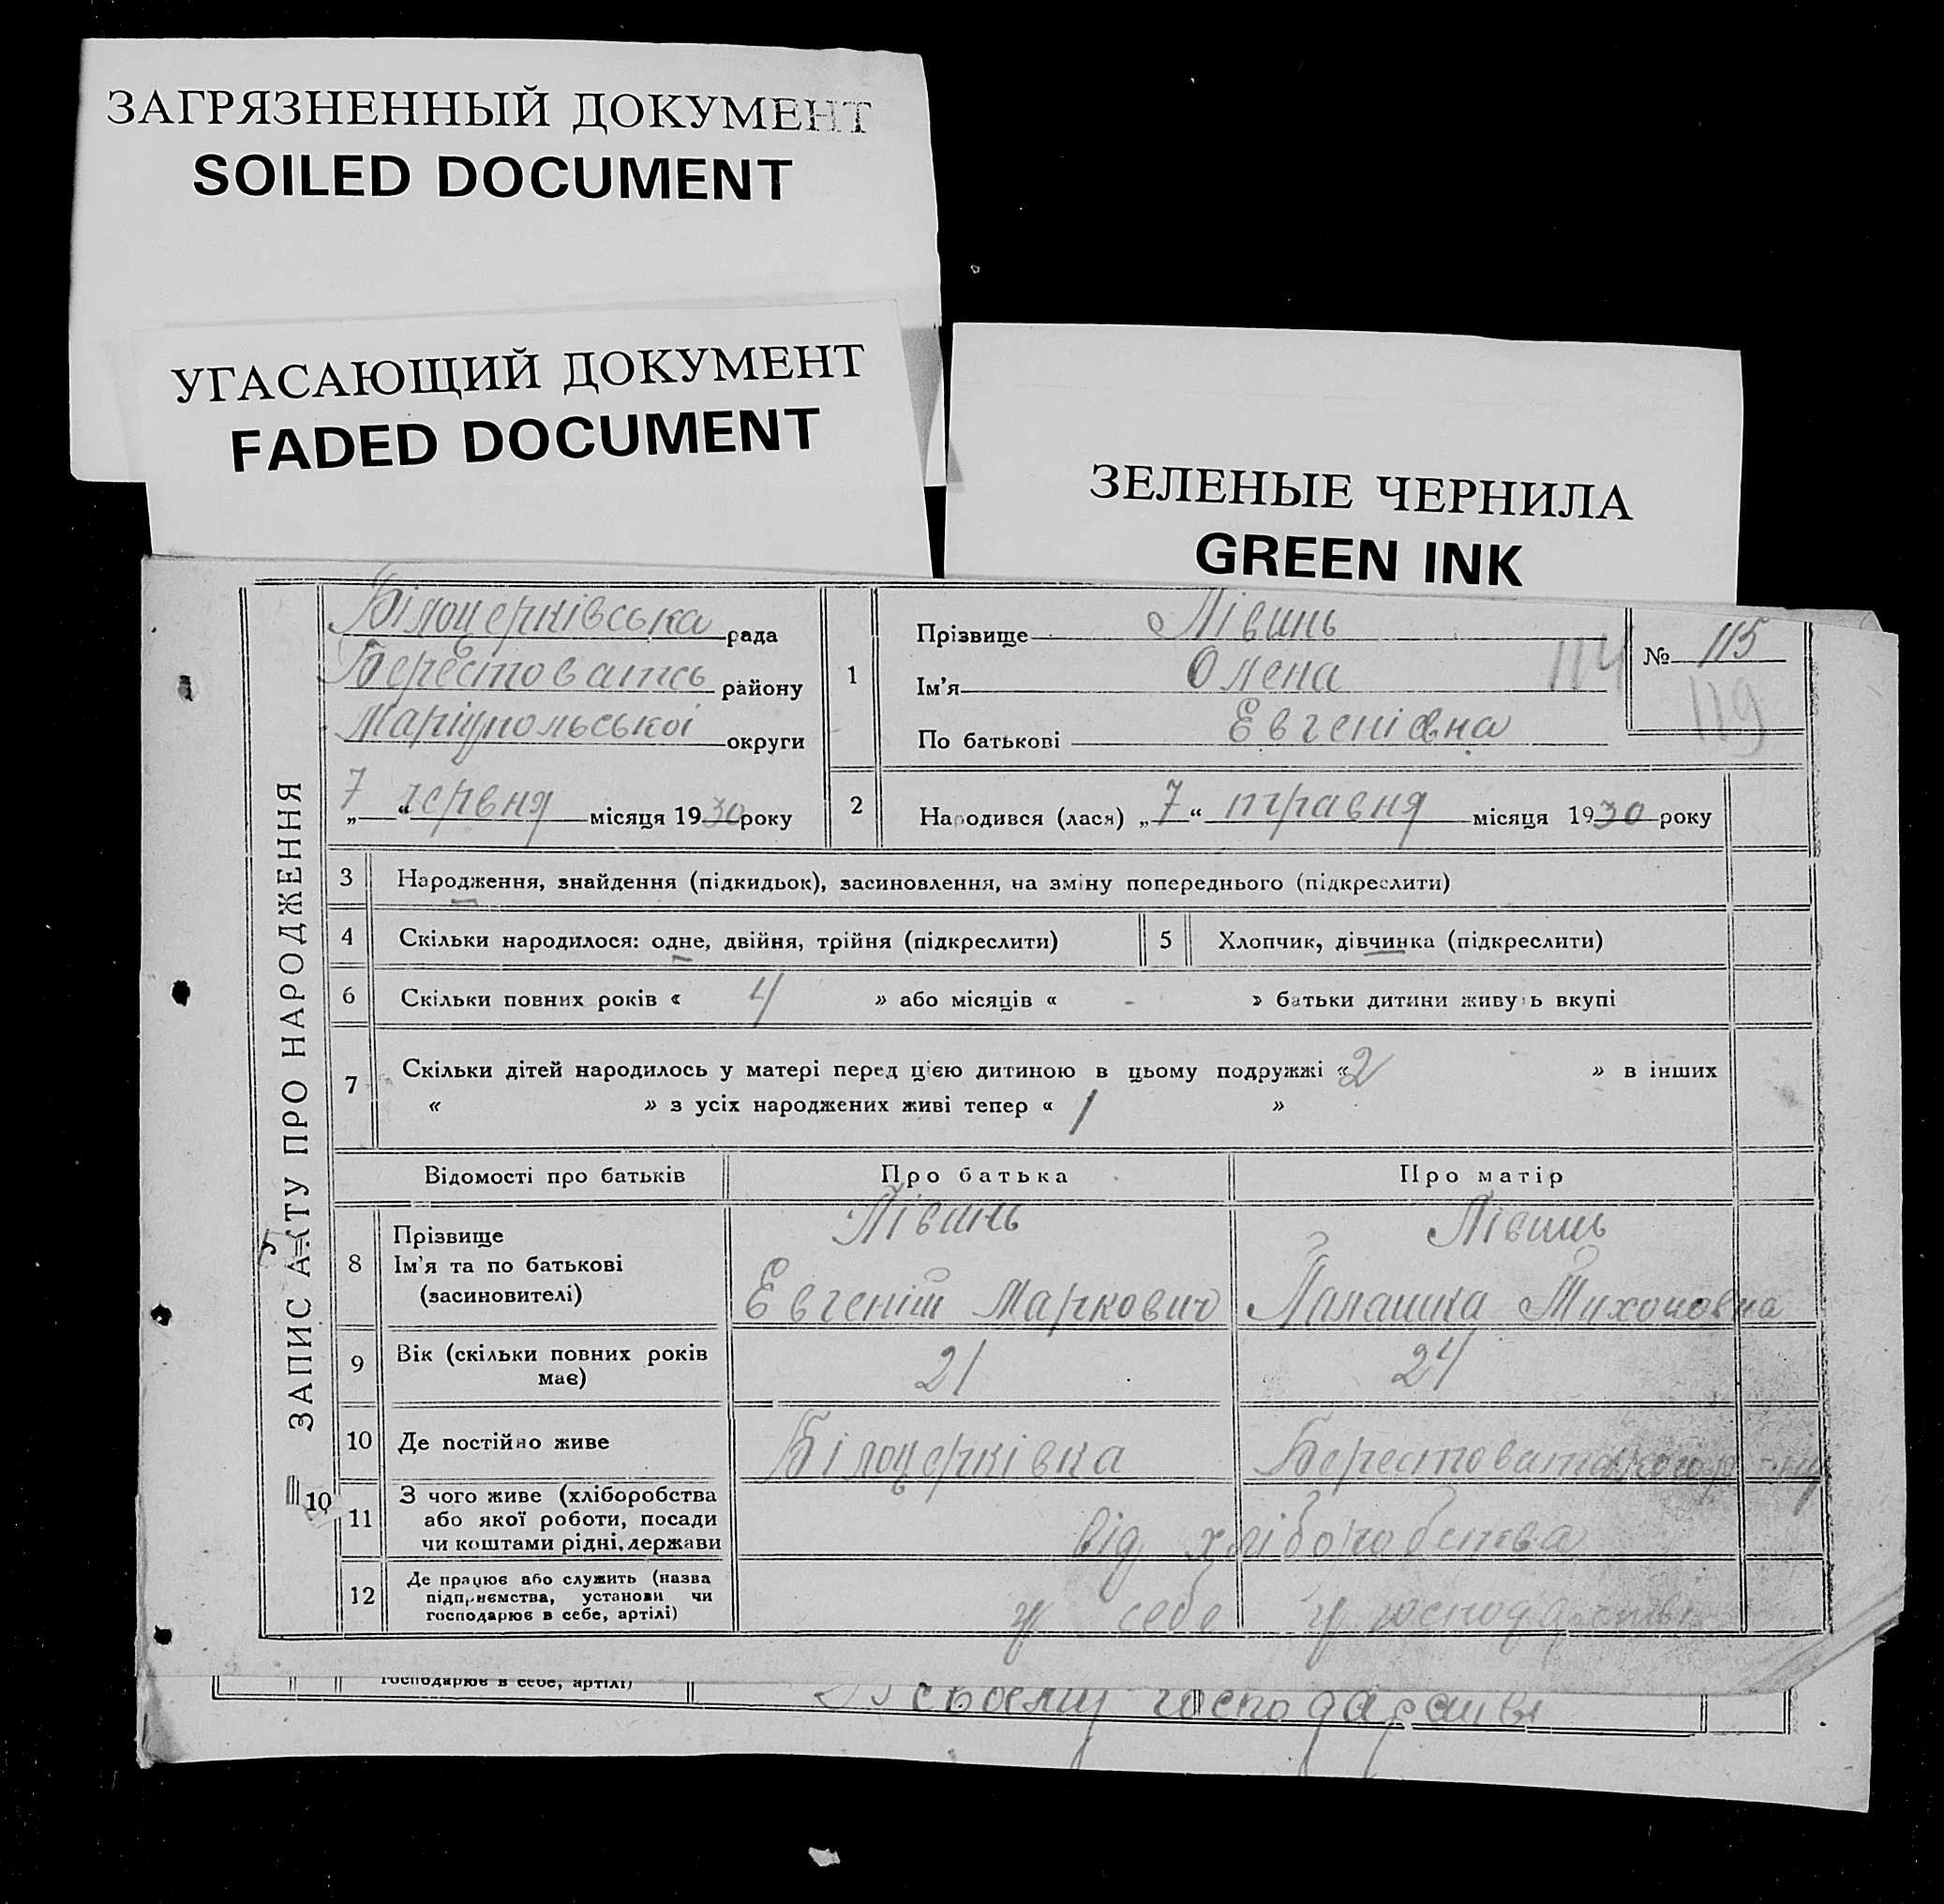 ЗАГРЯЗНЕННЫЙ ДОКУМЕНТ
SOILED DOCUMENT
УГАСАЮЩИЙ ДОКУМЕНТ
FADED DOCUMENT
ЗЕЛЕНЫЕ ЧЕРНИЛА
GREEN INK
ЗАПИС АКТУ ПРО НАРОДЖЕННЯ
10
Білоцерківська рада
Берестоватсь району
Маріупольської округи
7 „ “ червня місяця 1930 року
1
Прізвище Півинь
Ім'я Олена 114
По батькові Евгенівна
№ 115
119
2 Народився (лася) „7“ травня місяця 1930 року
3 Народження, знайдення (підкидьок), засиновлення, на зміну попереднього (підкреслити)
4 Скільки народилося: одне, двійня, трійня (підкреслити) 5 Хлопчик, дівчинка (підкреслити)
6 Скільки повних років « 4 » або місяців « - » батьки дитини живуть вкупі
7 Скільки дітей народилось у матері перед цією дитиною в цьому подружжі «2 » в інших
« » з усіх народжених живі тепер « 1 »
Відомості про батьків Про батька Про матір
8 Прізвище Півинь Півинь
Ім'я та по батькові
(засиновителі) Евгеній Маркович Палашка Тихоновна
9 Вік (скільки повних років
має) 21 24
10 Де постійно живе Білоцерківка Берестоватського
11 З чого живе (хліборобства
або якої роботи, посади
чи коштами рідні, держави від хліборобства
12 Де працює або служить (назва
підприємства, установи чи
господарює в себе, артілі) у себе у господарстві
господарює в себе, артілі) своему господарстві